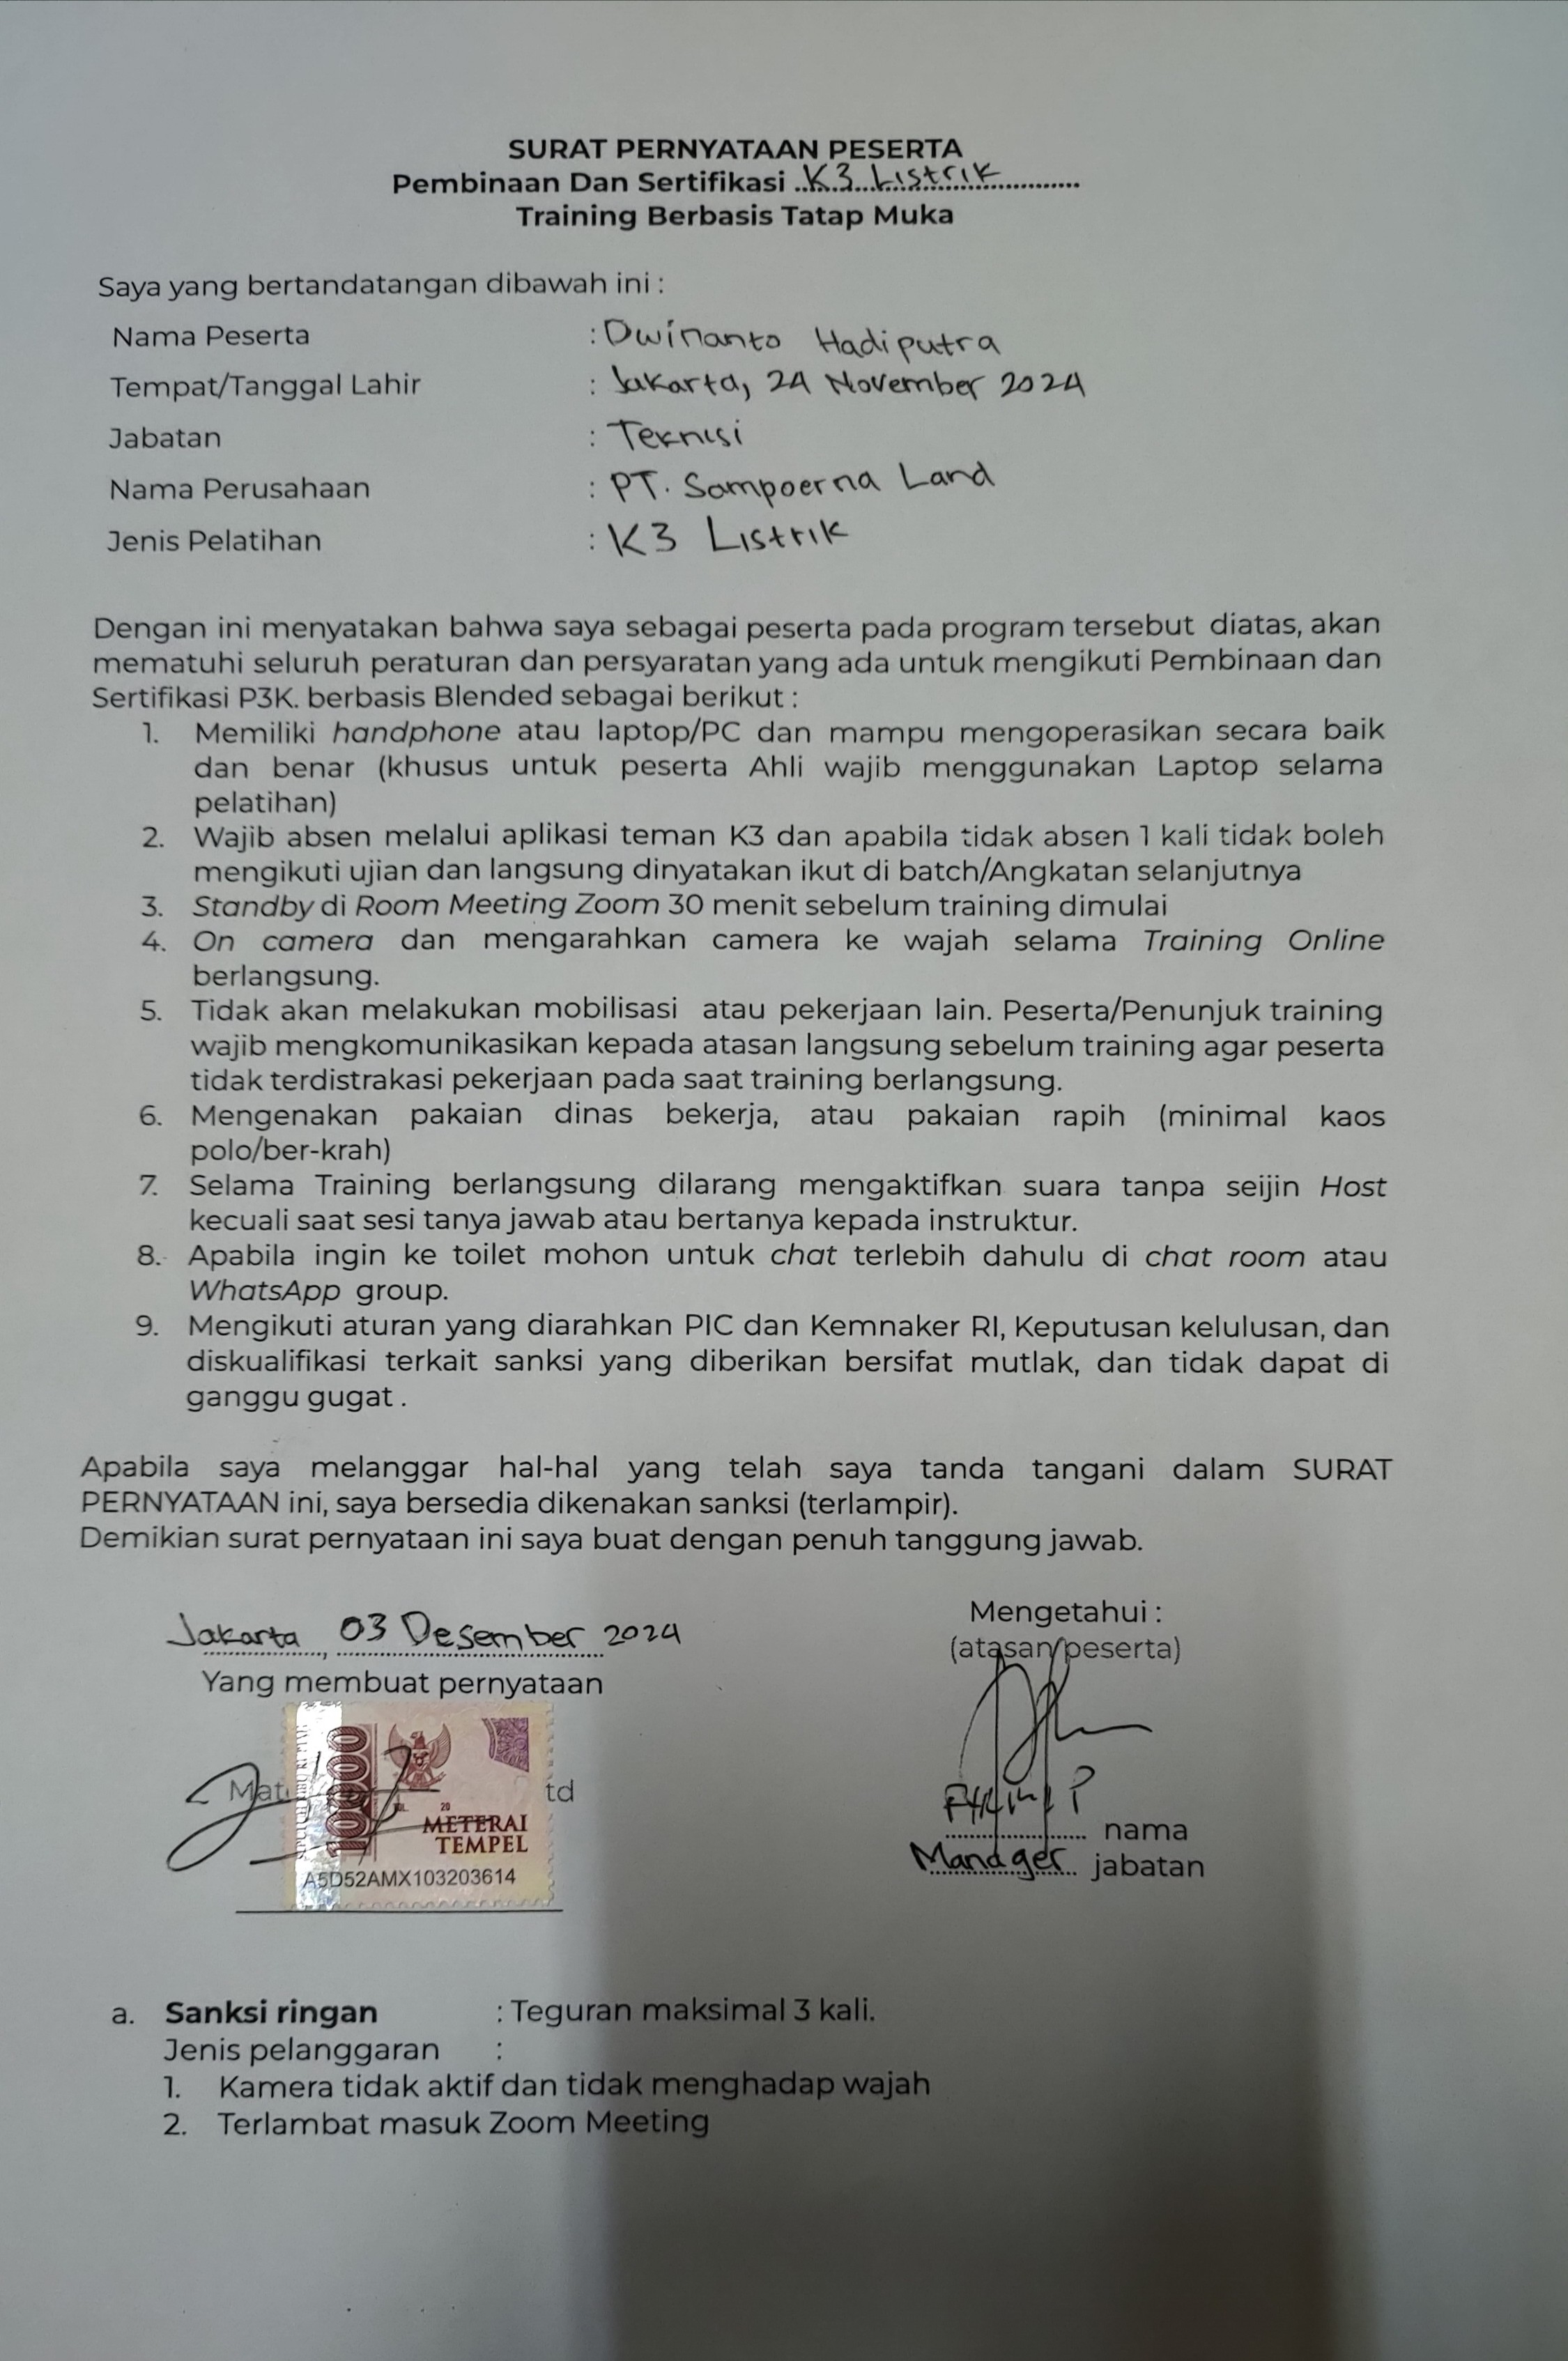 SURAT PERNYATAAN PESERTA
Pembinaan Dan Sertifikasi ..K3 Listrik..............
Training Berbasis Tatap Muka
Saya yang bertandatangan dibawah ini :
Nama Peserta : Dwinanto Hadiputra
Tempat/Tanggal Lahir : Jakarta, 24 November 2024
Jabatan : Teknisi
Nama Perusahaan : PT. Sampoerna Land
Jenis Pelatihan : K3 Listrik
Dengan ini menyatakan bahwa saya sebagai peserta pada program tersebut diatas, akan
mematuhi seluruh peraturan dan persyaratan yang ada untuk mengikuti Pembinaan dan
Sertifikasi P3K. berbasis Blended sebagai berikut :
1. Memiliki handphone atau laptop/PC dan mampu mengoperasikan secara baik
dan benar (khusus untuk peserta Ahli wajib menggunakan Laptop selama
pelatihan)
2. Wajib absen melalui aplikasi teman K3 dan apabila tidak absen 1 kali tidak boleh
mengikuti ujian dan langsung dinyatakan ikut di batch/Angkatan selanjutnya
3. Standby di Room Meeting Zoom 30 menit sebelum training dimulai
4. On camera dan mengarahkan camera ke wajah selama Training Online
berlangsung.
5. Tidak akan melakukan mobilisasi atau pekerjaan lain. Peserta/Penunjuk training
wajib mengkomunikasikan kepada atasan langsung sebelum training agar peserta
tidak terdistrakasi pekerjaan pada saat training berlangsung.
6. Mengenakan pakaian dinas bekerja, atau pakaian rapih (minimal kaos
polo/ber-krah)
7. Selama Training berlangsung dilarang mengaktifkan suara tanpa seijin Host
kecuali saat sesi tanya jawab atau bertanya kepada instruktur.
8. Apabila ingin ke toilet mohon untuk chat terlebih dahulu di chat room atau
WhatsApp group.
9. Mengikuti aturan yang diarahkan PIC dan Kemnaker RI, Keputusan kelulusan, dan
diskualifikasi terkait sanksi yang diberikan bersifat mutlak, dan tidak dapat di
ganggu gugat .
Apabila saya melanggar hal-hal yang telah saya tanda tangani dalam SURAT
PERNYATAAN ini, saya bersedia dikenakan sanksi (terlampir).
Demikian surat pernyataan ini saya buat dengan penuh tanggung jawab.
Jakarta, 03 Desember 2024
Yang membuat pernyataan
Mat td
10000
20
METERAI
TEMPEL
A5D52AMX103203614
Mengetahui :
(atasan/peserta)
P
nama
Manager jabatan
a. Sanksi ringan : Teguran maksimal 3 kali.
Jenis pelanggaran :
1. Kamera tidak aktif dan tidak menghadap wajah
2. Terlambat masuk Zoom Meeting